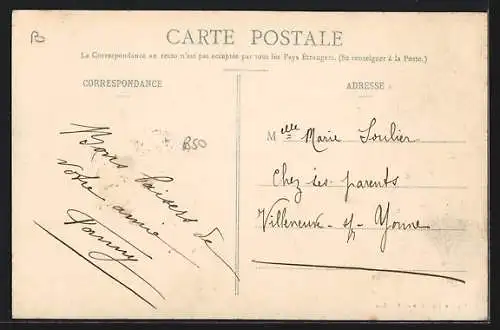 B
CARTE POSTALE
La Correspondance au recto n'est pas acceptée par tous les Pays Étrangers. (Se renseigner à la Poste.)
CORRESPONDANCE
B50
Bons baisers de
votre amie
Fanny
ADRESSE
Melle Marie Soulier
Chez ses parents
Villeneuve-s/-Yonne